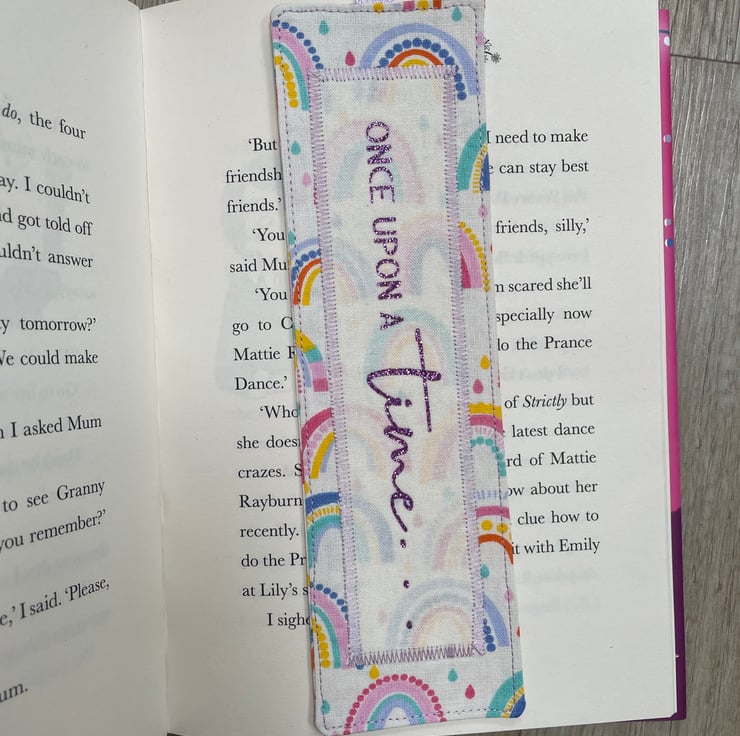 do, the four
ay. I couldn’t
nd got told off
uldn’t answer
y tomorrow?’
We could make
n I asked Mum
to see Granny
you remember?’
e,’ I said. ‘Please,
um.
‘But I need to make
friendsh e can stay best
friends.’
‘You friends, silly,’
said Mu
‘You n scared she’ll
go to C specially now
Mattie R do the Prance
Dance.’
‘Who of Strictly but
she does latest dance
crazes. S rd of Mattie
Rayburn ow about her
recently. clue how to
do the Pr it with Emily
at Lily’s s
I sighe
ONCE UPON A
time...